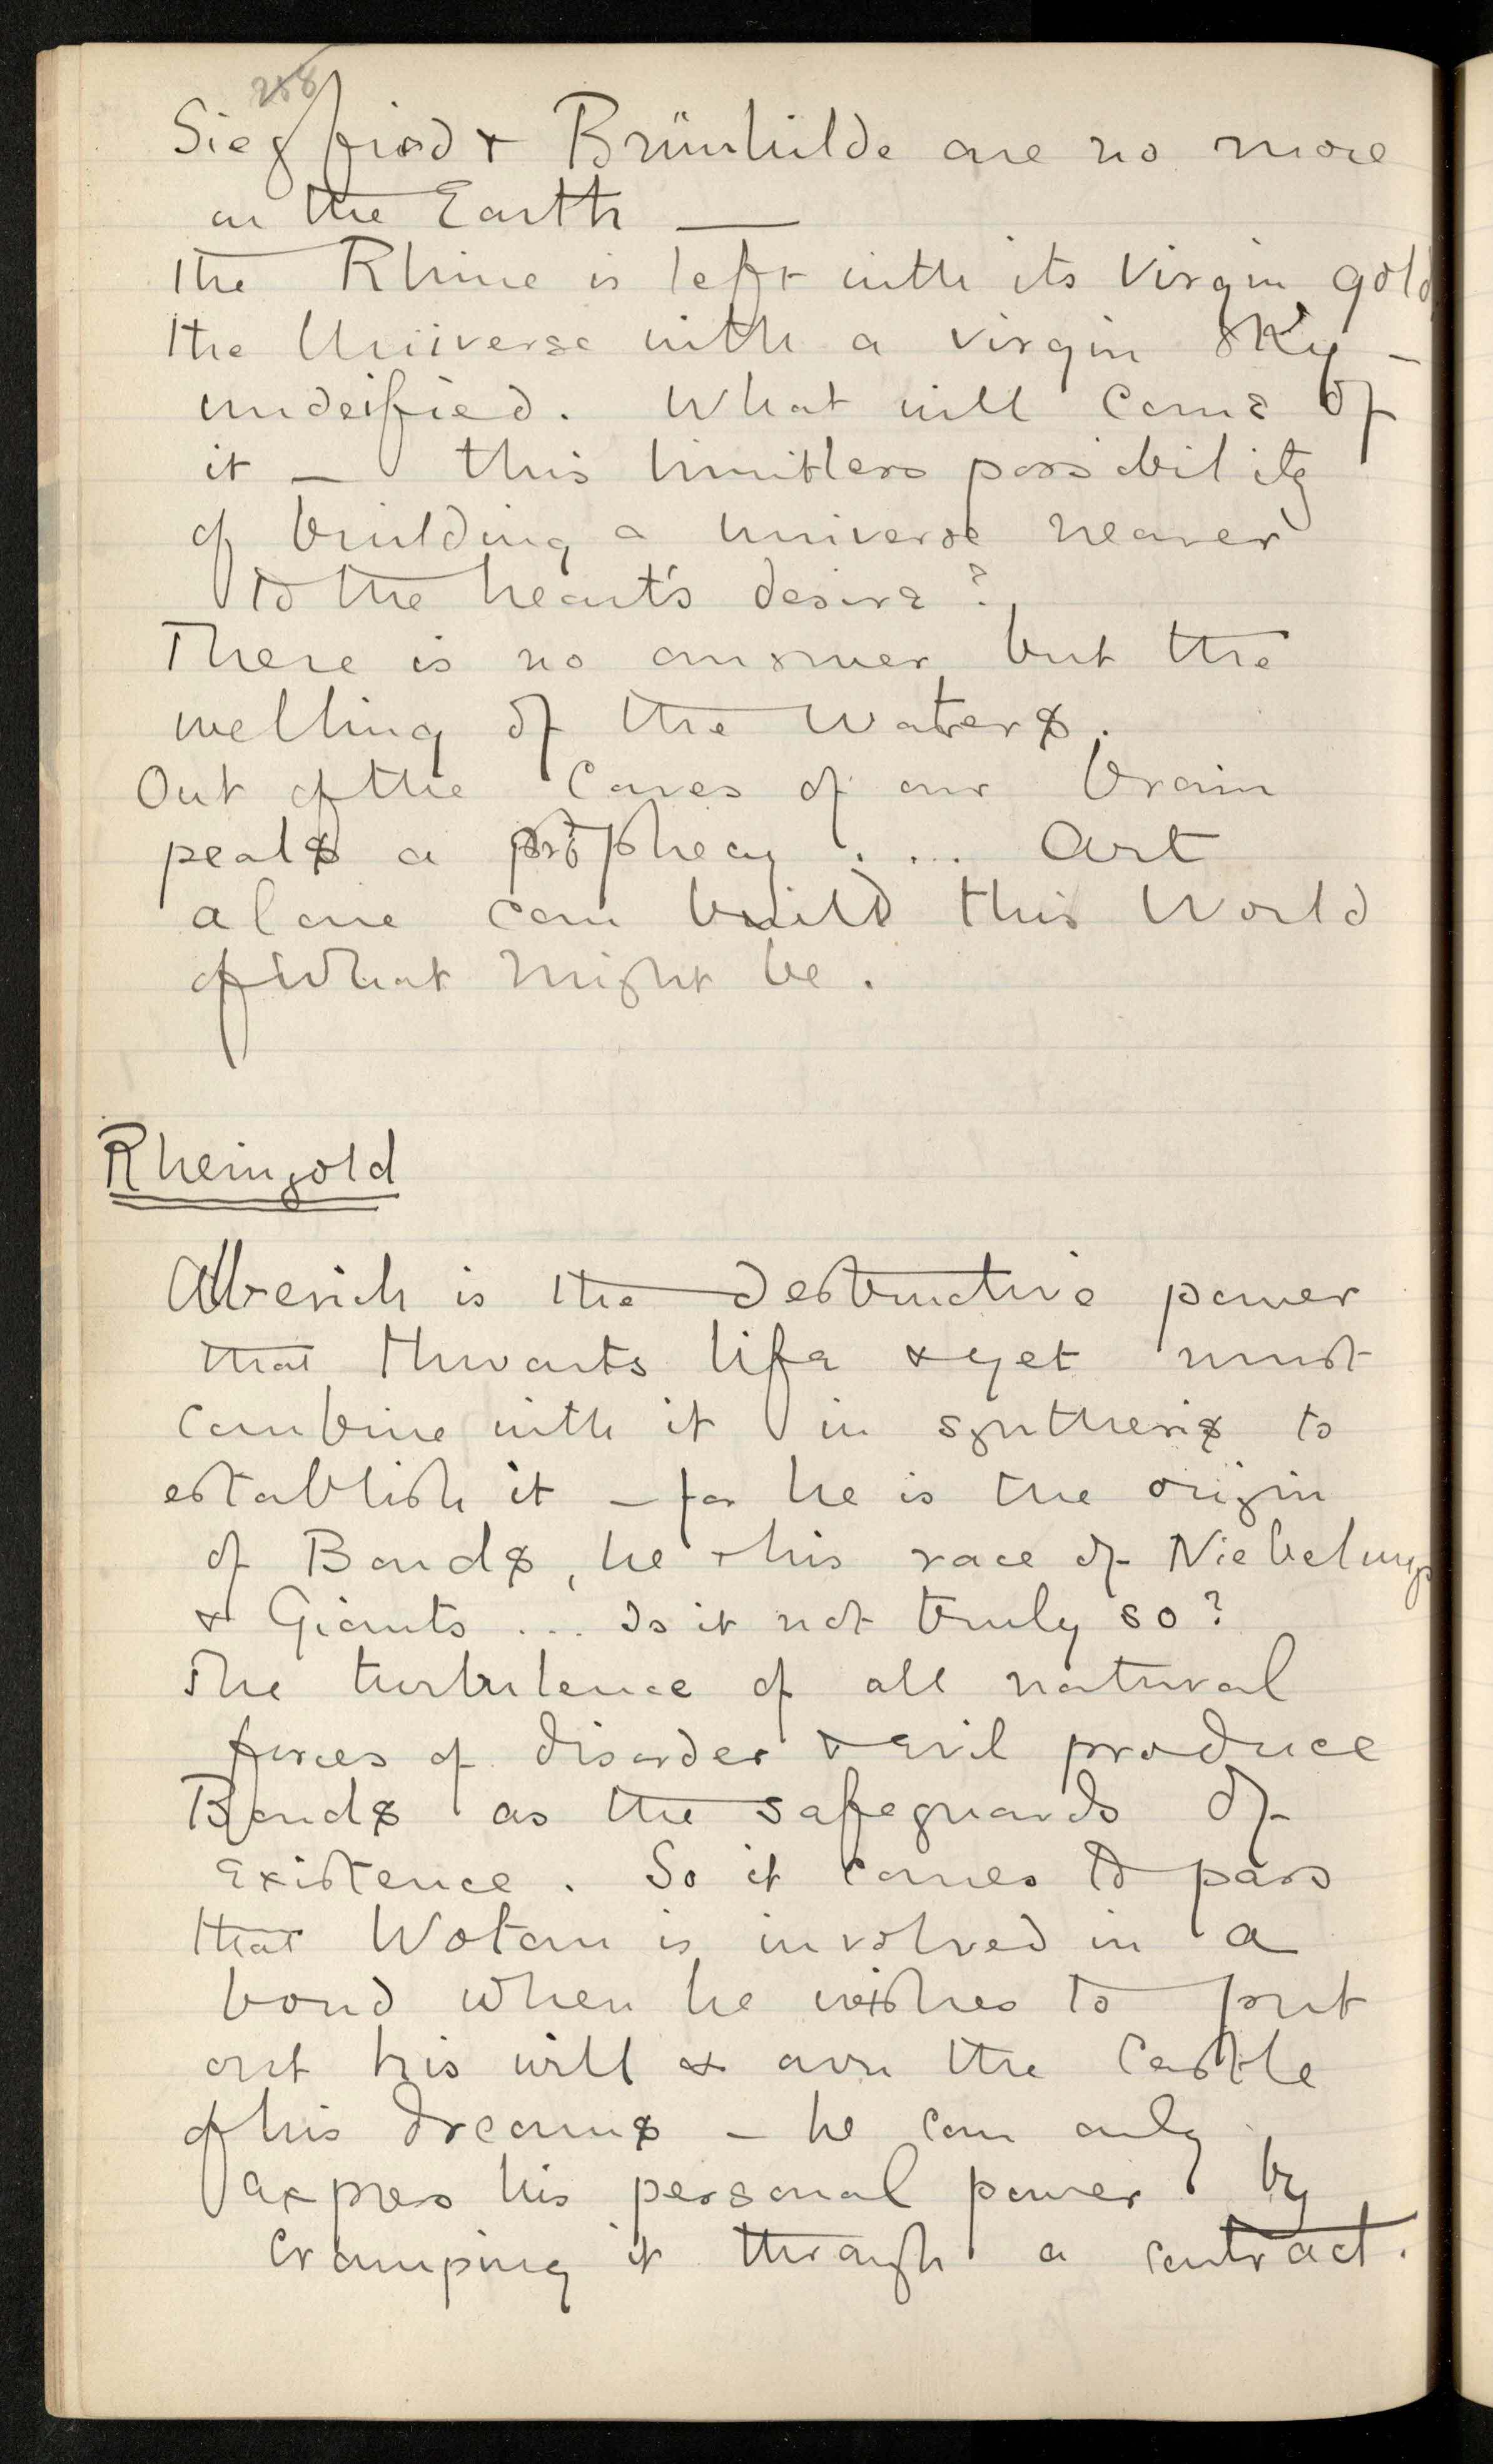 258
Siegfried & Brünhilde are no more
on the Earth —
the Rhine is left with its Virgin gold
the Universe with a virgin sky –
undeified. What will come of
it – this limitless possibility
of building a universe nearer
to the heart's desire?
There is no answer but the
welling of the waters.
Out of the Caves of our brain
peals a prophecy .... Art
alone can build this World
of What might be.
Rheingold
Alberich is the destructive power
that thwarts life & yet must
combine with it in synthesis to
establish it – for he is the origin
of Bonds, he & his race of Niebelungs
& Giants ... Is it not truly so?
The turbulence of all natural
forces of disorder & evil produce
Bonds as the safeguards of
Existence. So it comes to pass
that Wotan is involved in a
bond when he wishes to put
out his will & own the Castle
of his dreams – he can only
express his personal power by
cramping it through a contract.